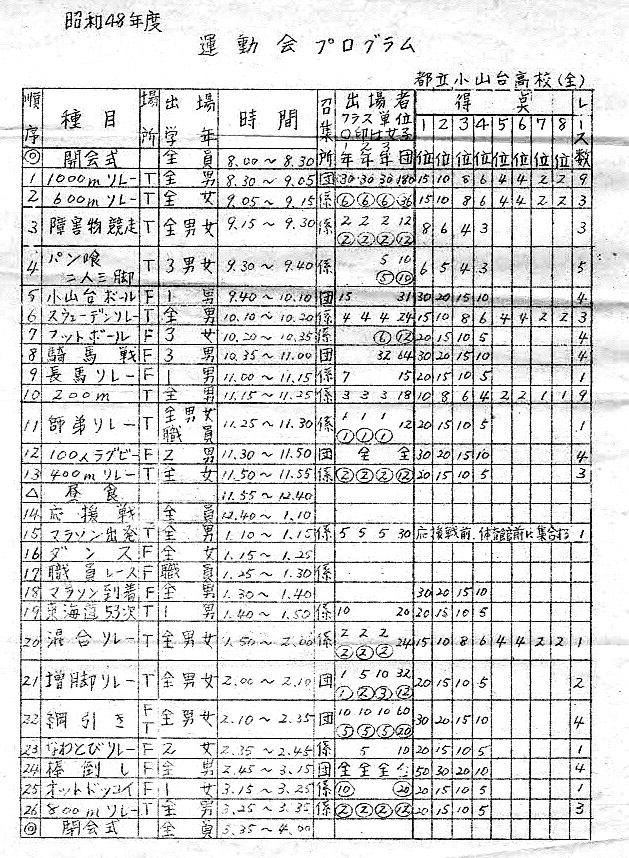 昭和48年度
運動会プログラム
都立小山台高校(全)
順序 種目 場所 出場学年 時間 召集所 出場者 クラス単位 ○印は女子 1年 2年 3年 団 得点 1位 2位 3位 4位 5位 6位 7位 8位 レース数
◎ 開会式 全員 8.00〜8.30
1 1000mリレー T 全男 8.30〜9.05 団 30 30 30 180 15 10 8 6 4 4 2 2 9
2 600mリレー T 全女 9.05〜9.15 係 ⑥ ⑥ ⑥ ㊱ 15 10 8 6 4 4 2 2 3
3 障害物競走 T 全男女 9.15〜9.30 係 2 2 2 12 ② ② ② ⑫ 8 6 4 3 3
4 パン喰二人三脚 T 3男女 9.30〜9.40 係 5 10 ⑤ ⑩ 6 5 4 3 5
5 小山台ボール F 1男 9.40〜10.10 団 15 31 30 20 15 10 4
6 スウェーデンリレー T 男 10.10〜10.20 係 4 4 4 24 15 10 8 6 4 4 2 2 3
7 フットボール F 3女 10.20〜10.35 係 ⑥ ⑫ 20 15 10 5 4
8 騎馬戦 F 3男 10.35〜11.00 団 32 64 30 20 15 10 4
9 長馬リレー F 1男 11.00〜11.15 係 7 15 20 15 10 5 1
10 200m T 全男 11.15〜11.25 係 3 3 3 18 10 8 6 4 2 2 1 1 9
11 師弟リレー T 全男女職員 11.25〜11.30 係 1 1 1 12 ① ① ① 20 15 10 5 1
12 100人ラグビー F 2男 11.30〜11.50 団 全 全 30 20 15 10 4
13 400mリレー T 全女 11.50〜11.55 係 ② ② ② ⑫ 20 15 10 5 3
△ 昼食 11.55〜12.40
14 応援戦 全員 12.40〜1.10
15 マラソン出発 T 全男 1.10〜1.15 係 5 5 5 30 応援戦前、体育館前に集合する 1
16 ダンス F 全女 1.15〜1.25
17 職員レース F 職員 1.25〜1.30 係
18 マラソン到着 F 全男 1.30〜1.40 30 20 15 10
19 東海道53次 T 1男 1.40〜1.50 係 10 20 20 15 10 5
20 混合リレー T 全男女 1.50〜2.00 係 2 2 2 24 ② ② ② 15 10 8 6 4 4 2 2 1
21 増脚リレー T 全男女 2.00〜2.10 団 1 5 10 32 ① ② ③ ⑫ 20 15 10 5 2
22 綱引き F T 全男女 2.10〜2.35 団 10 10 10 60 ⑤ ⑤ ⑤ ⑳ 30 20 15 10 4
23 なわとびリレー F 2女 2.35〜2.45 係 5 10 20 15 10 5 1
24 棒倒し F 全男 2.45〜3.15 団 全 全 全 50 30 20 10 4
25 オットドッコイ F 1女 3.15〜3.25 係 ⑩ ⑳ 20 15 10 5 1
26 800mリレー T 全男 3.25〜3.35 係 ② ② ② ⑫ 20 15 10 5 3
◎ 閉会式 全員 3.35〜4.00